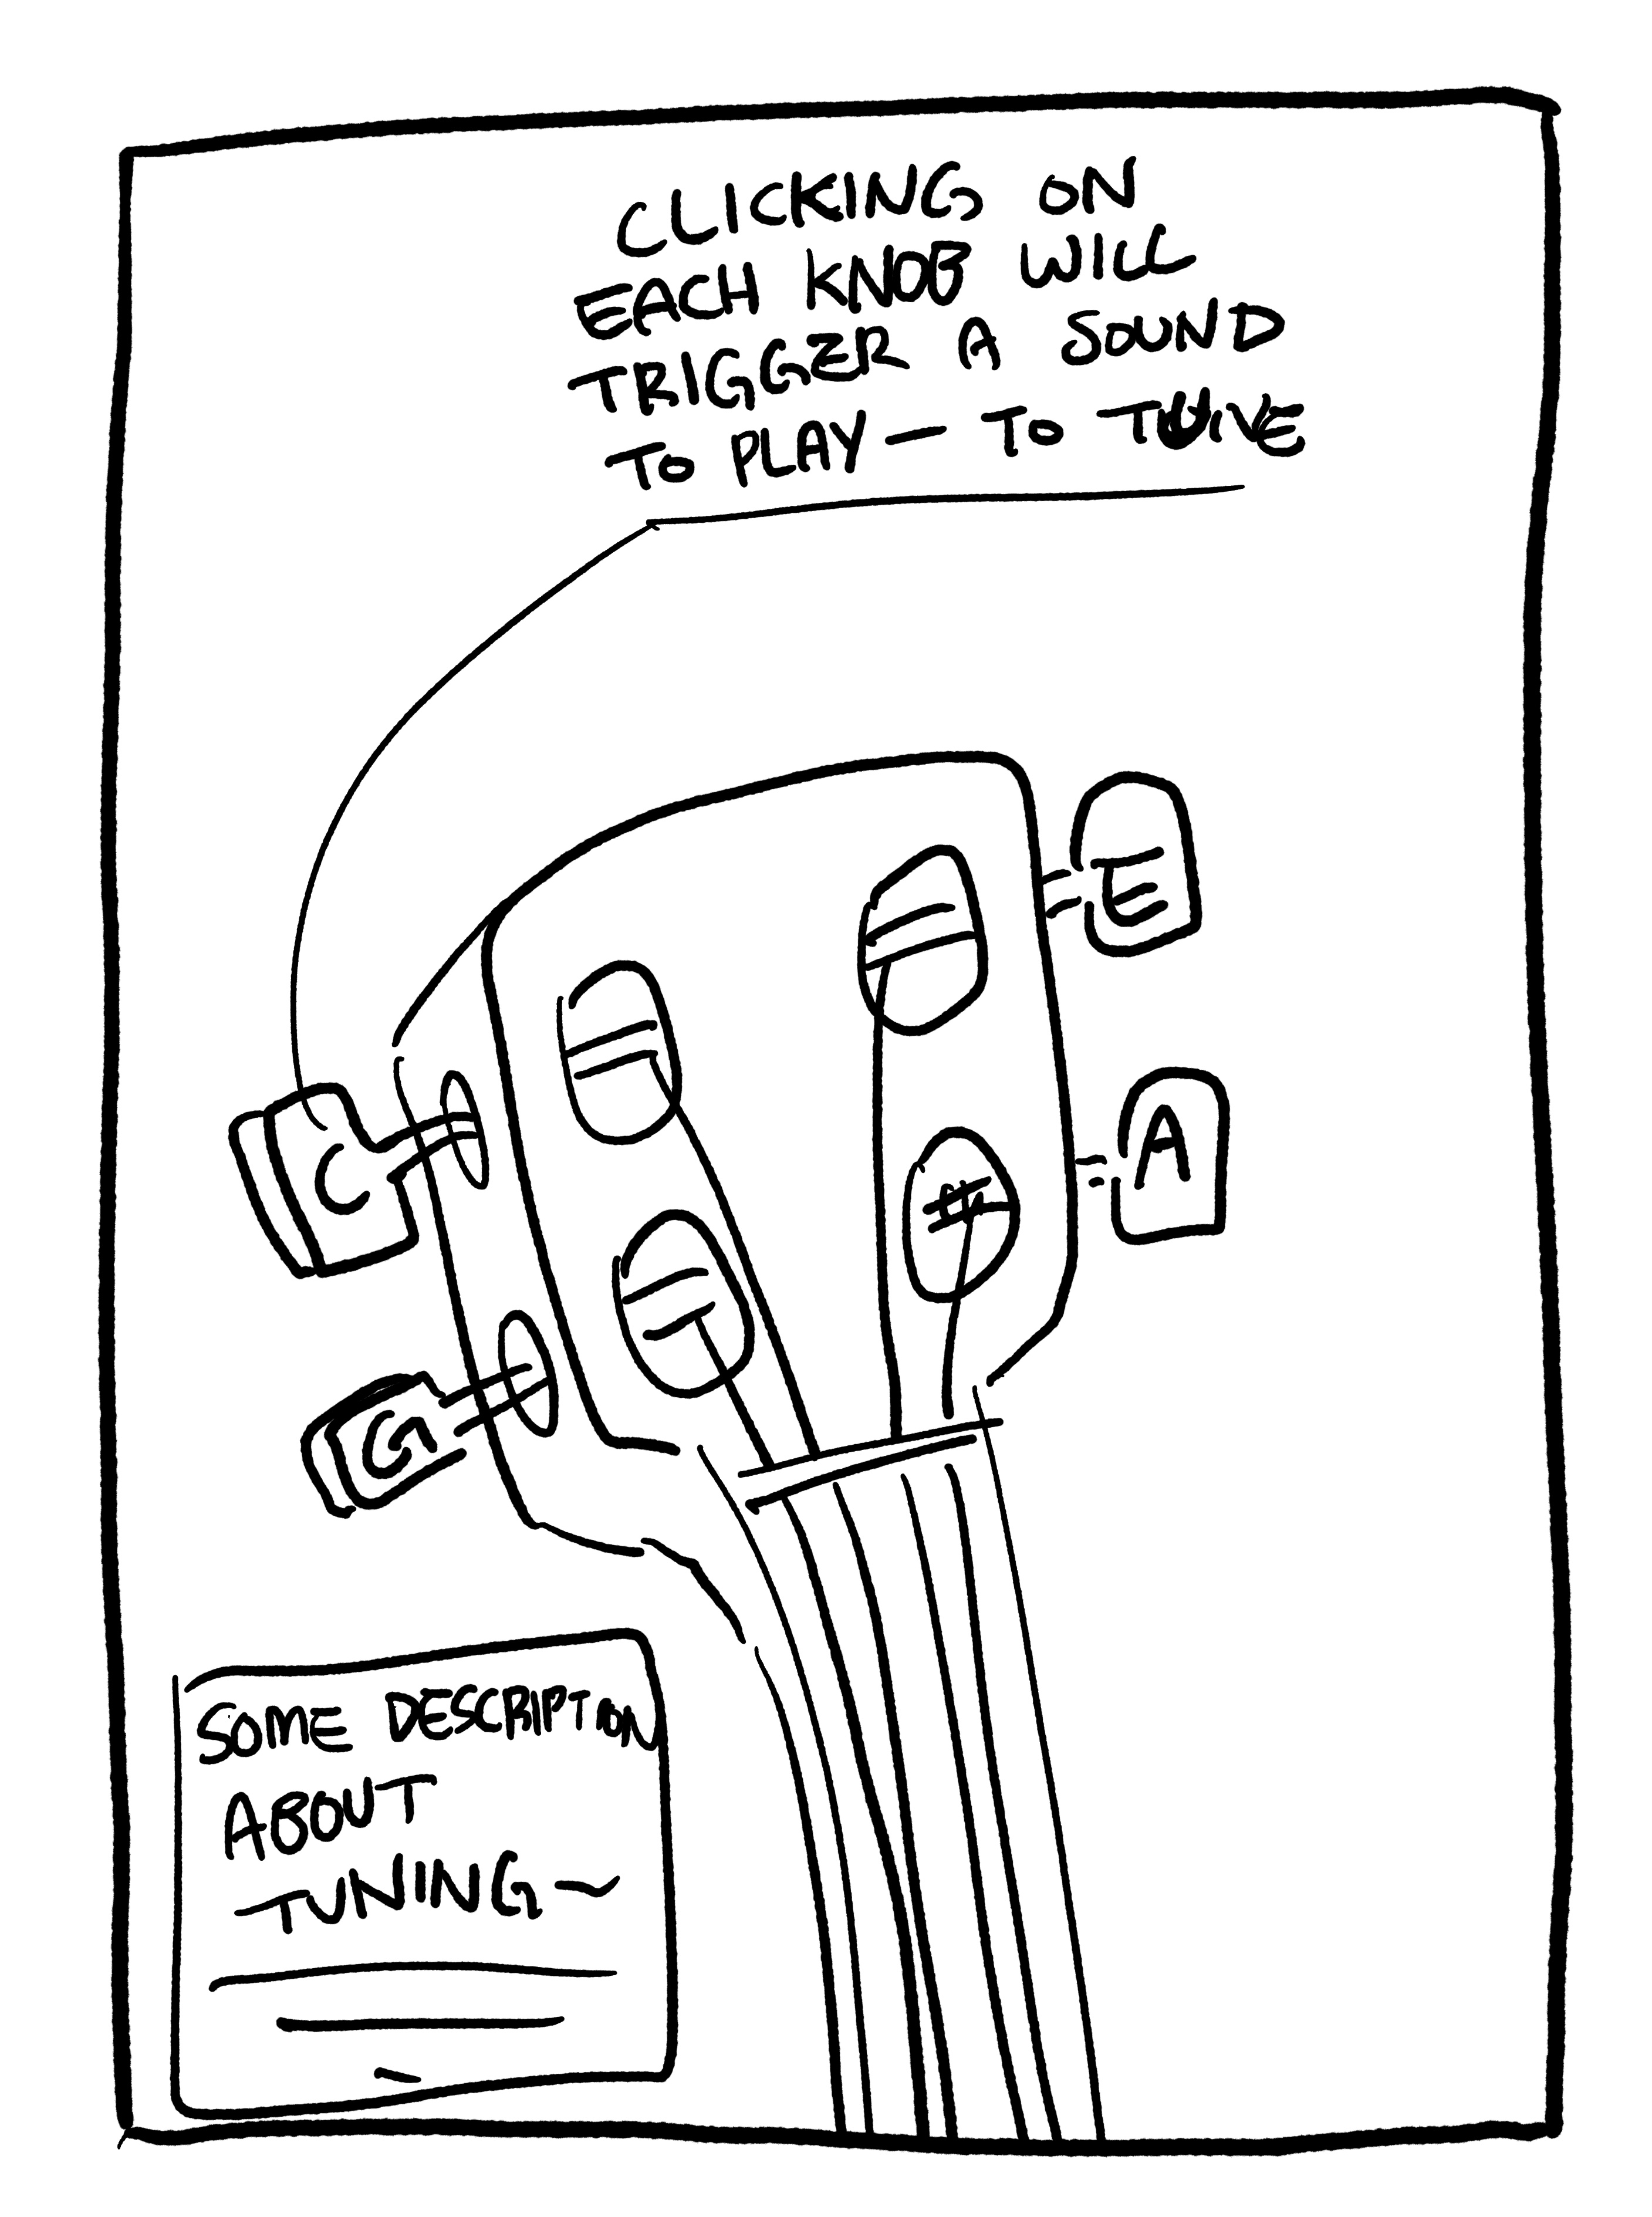 CLICKING ON
EACH KNOB WILL
TRIGGER A SOUND
TO PLAY — TO TUNE
E
C
A
G
SOME DESCRIPTION
ABOUT
TUNING~